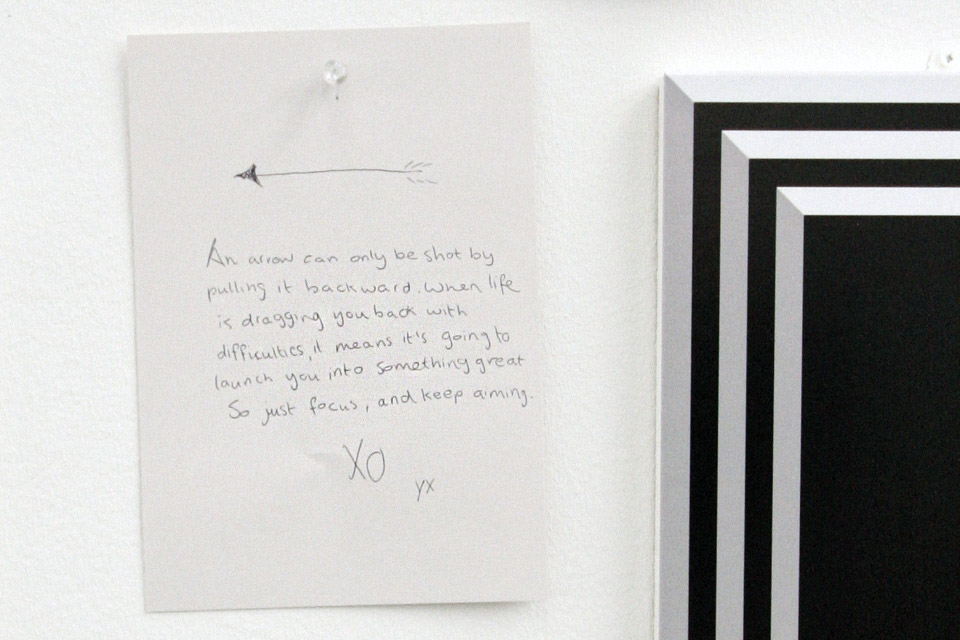 An arrow can only be shot by
pulling it backward. When life
is dragging you back with
difficulties, it means it's going to
launch you into something great
So just focus, and keep aiming.
XO
yx